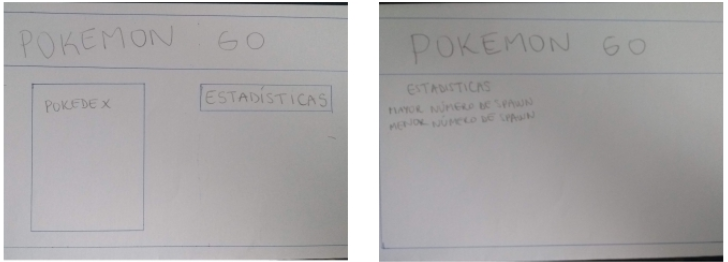 POKEMON GO
POKEDEX
ESTADÍSTICAS
POKEMON GO
ESTADISTICAS
MAYOR NÚMERO DE SPAWN
MENOR NÚMERO DE SPAWN